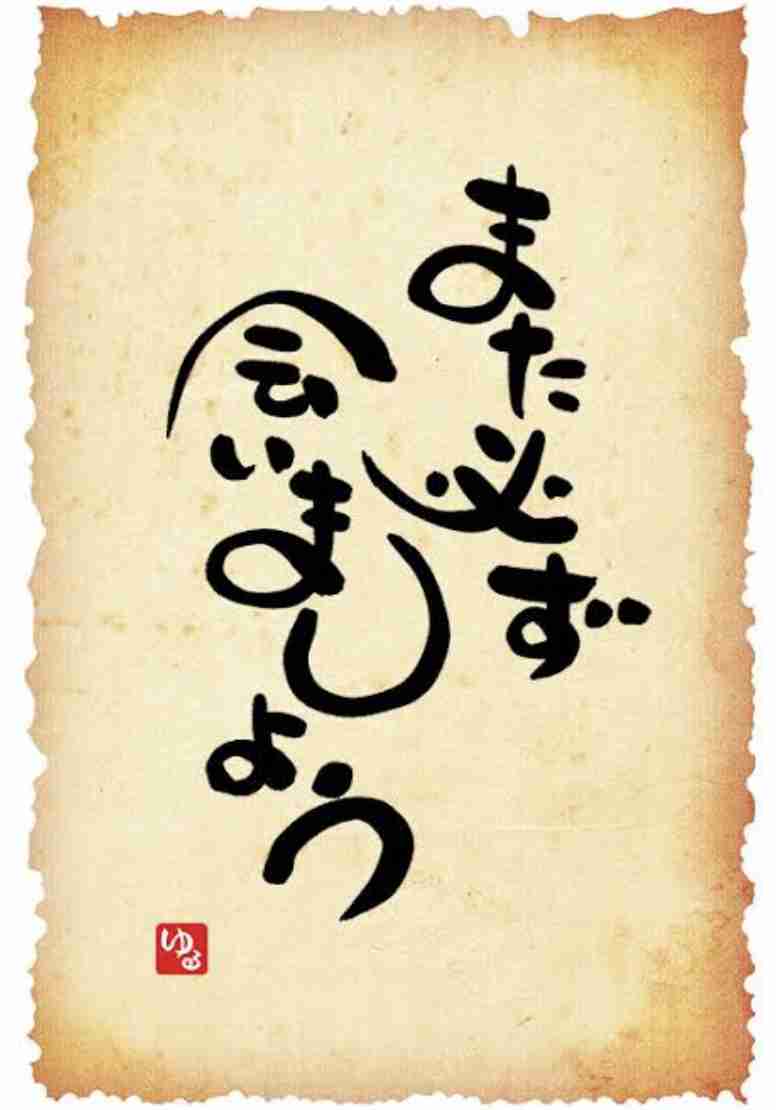 また必ず
会いましょう
ゆる